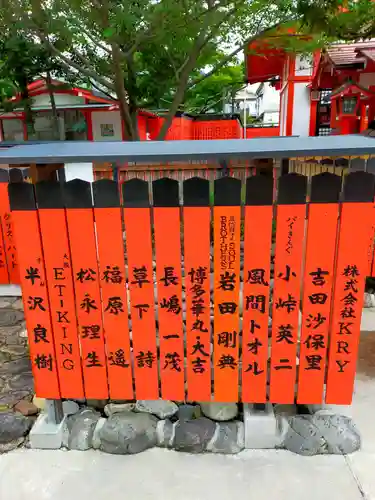 株式会社 KRY
吉田沙保里
パイさんぐ 小峠英二
風間トオル
BROTHERS GOOD 岩田剛典
博多華丸・大吉
長嶋一茂
草下詩
福原遥
松永理生
E.T-KING
半沢良樹